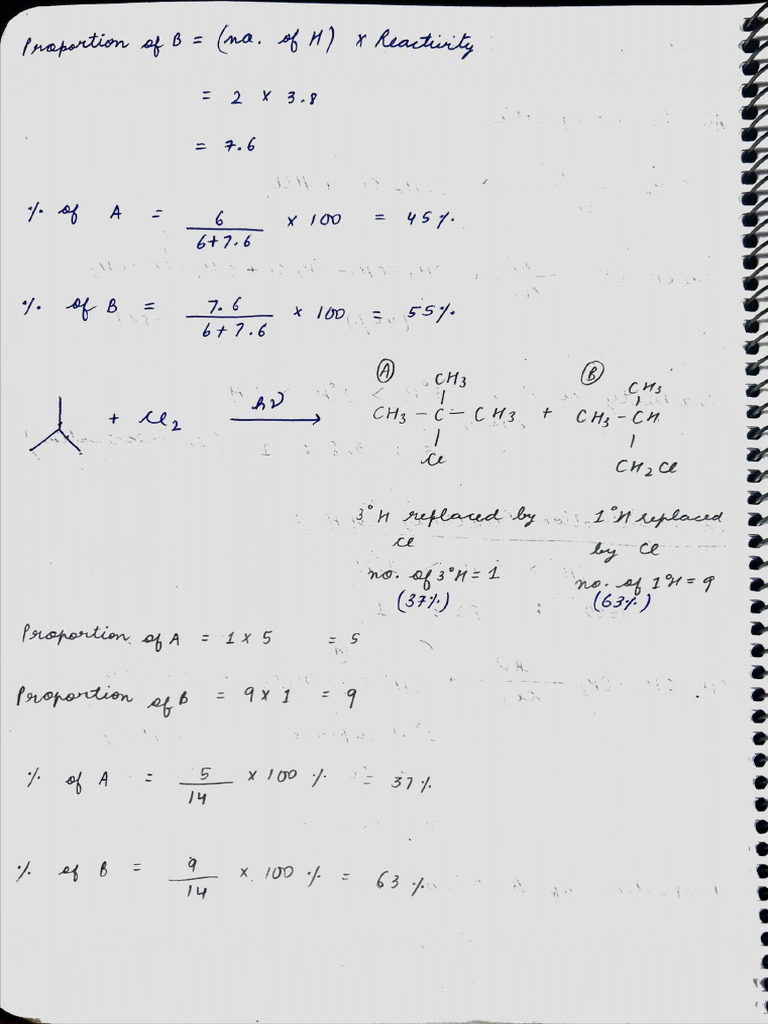 Proportion of B = (no. of H) x Reactivity
= 2 x 3.8
= 7.6
% of A = 6 / 6+7.6 x 100 = 45%
% of B = 7.6 / 6+7.6 x 100 = 55%
+ Cl2 hν → Ⓐ CH3 – C(CH3)(Cl) – CH3 + Ⓑ CH3 – CH(CH3)(CH2Cl)
3°H replaced by Cl
no. of 3°H = 1
(37%)
1°H replaced by Cl
no. of 1°H = 9
(63%)
Proportion of A = 1 x 5 = 5
Proportion of B = 9 x 1 = 9
% of A = 5 / 14 x 100 % = 37%
% of B = 9 / 14 x 100 % = 63%